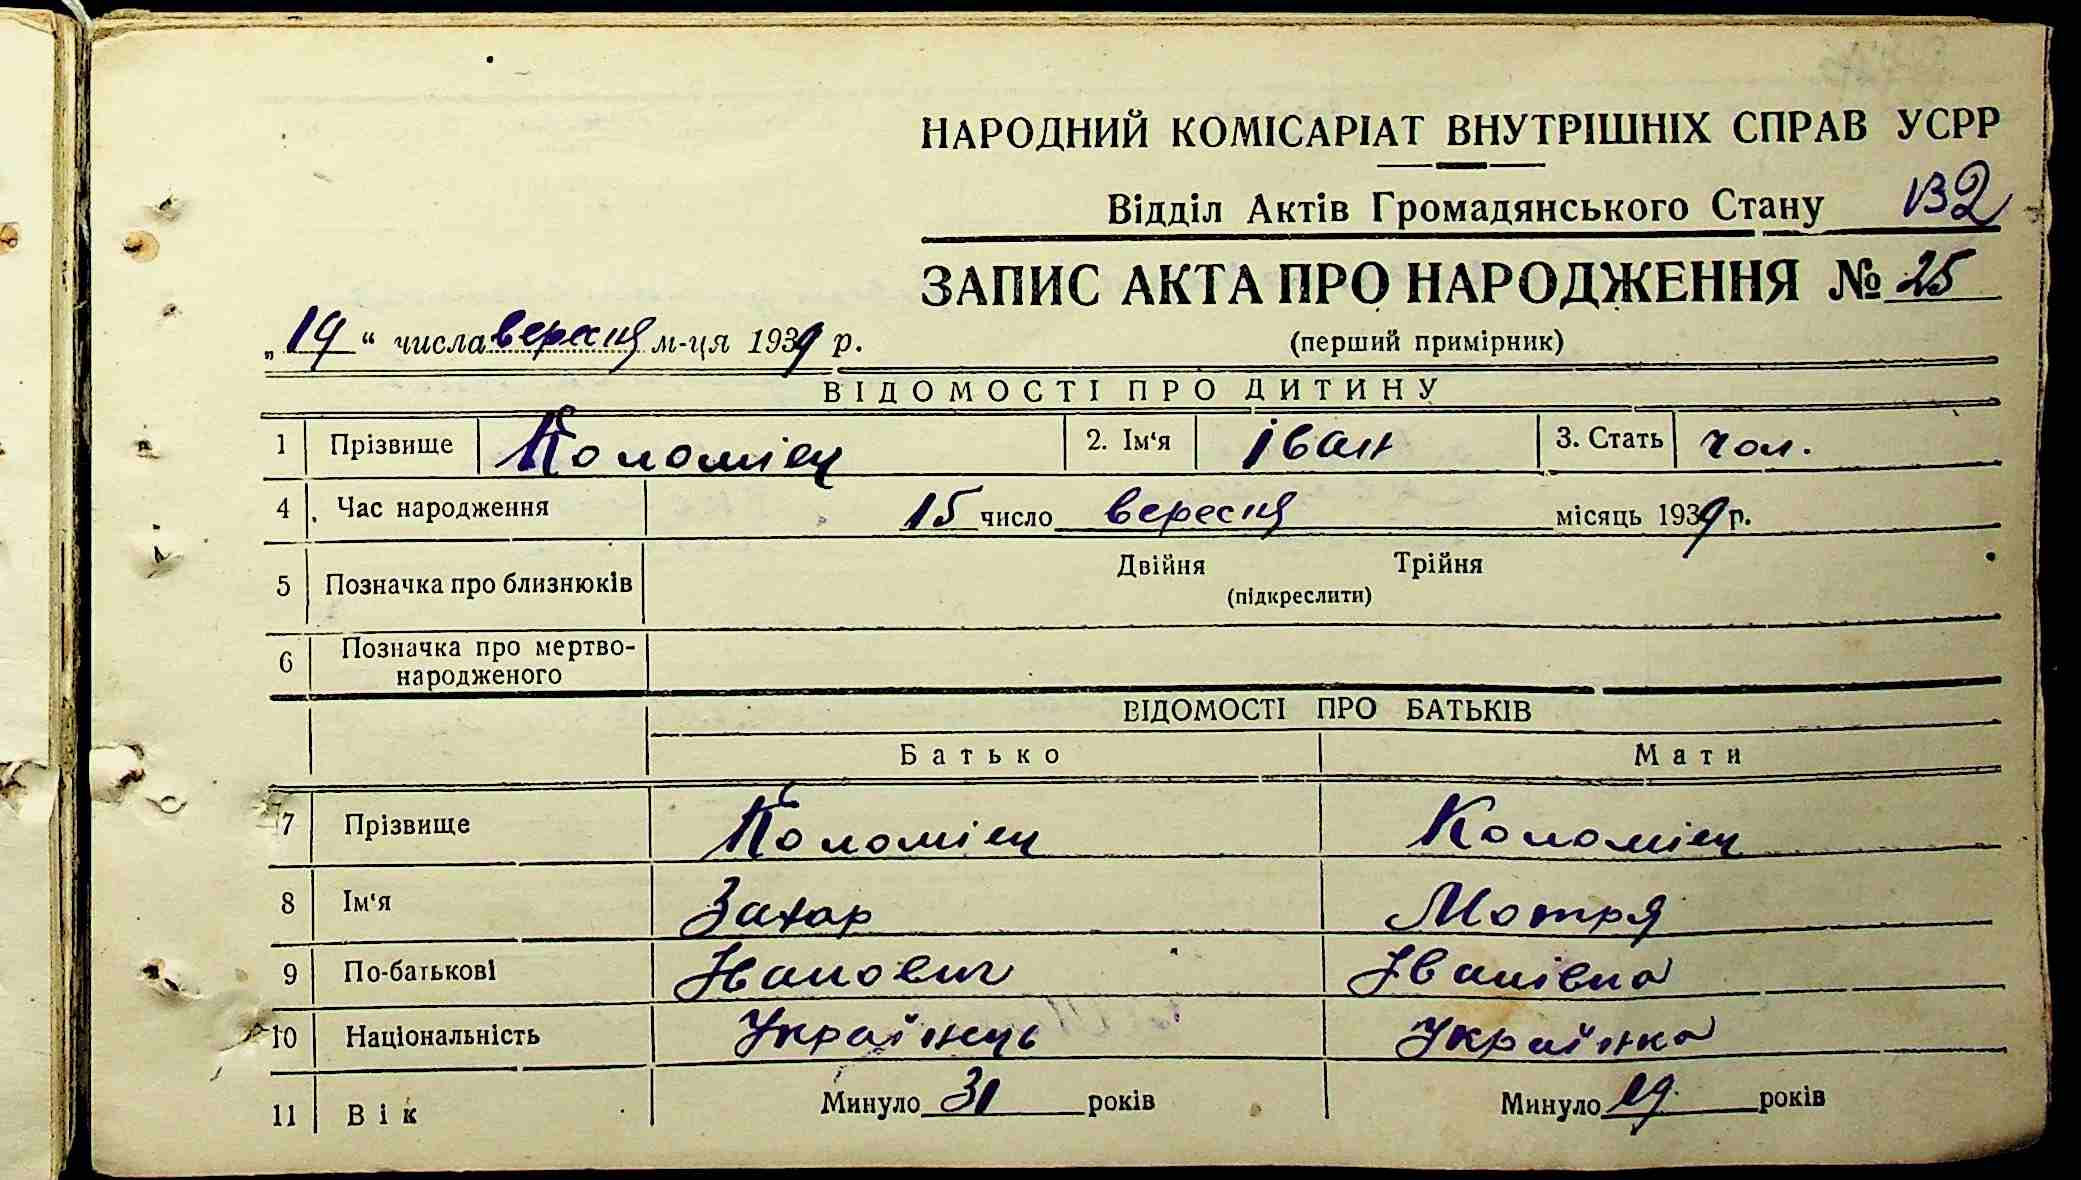 НАРОДНИЙ КОМІСАРІАТ ВНУТРІШНІХ СПРАВ УСРР
Відділ Актів Громадянського Стану 132
ЗАПИС АКТА ПРО НАРОДЖЕННЯ № 25
„19“ числа вересня м-ця 1939 р. (перший примірник)
ВІДОМОСТІ ПРО ДИТИНУ
1 Прізвище Коломієц 2. Ім‘я Іван 3. Стать чол.
4 Час народження 15 число вересня місяць 1939 р.
5 Позначка про близнюків Двійня Трійня
(підкреслити)
6 Позначка про мертво-
народженого
ВІДОМОСТІ ПРО БАТЬКІВ
Батько Мати
7 Прізвище Коломієц Коломієц
8 Ім‘я Захар Мотря
9 По-батькові Іванович Іванівна
10 Національність Українець Українка
11 Вік Минуло 31 років Минуло 19 років